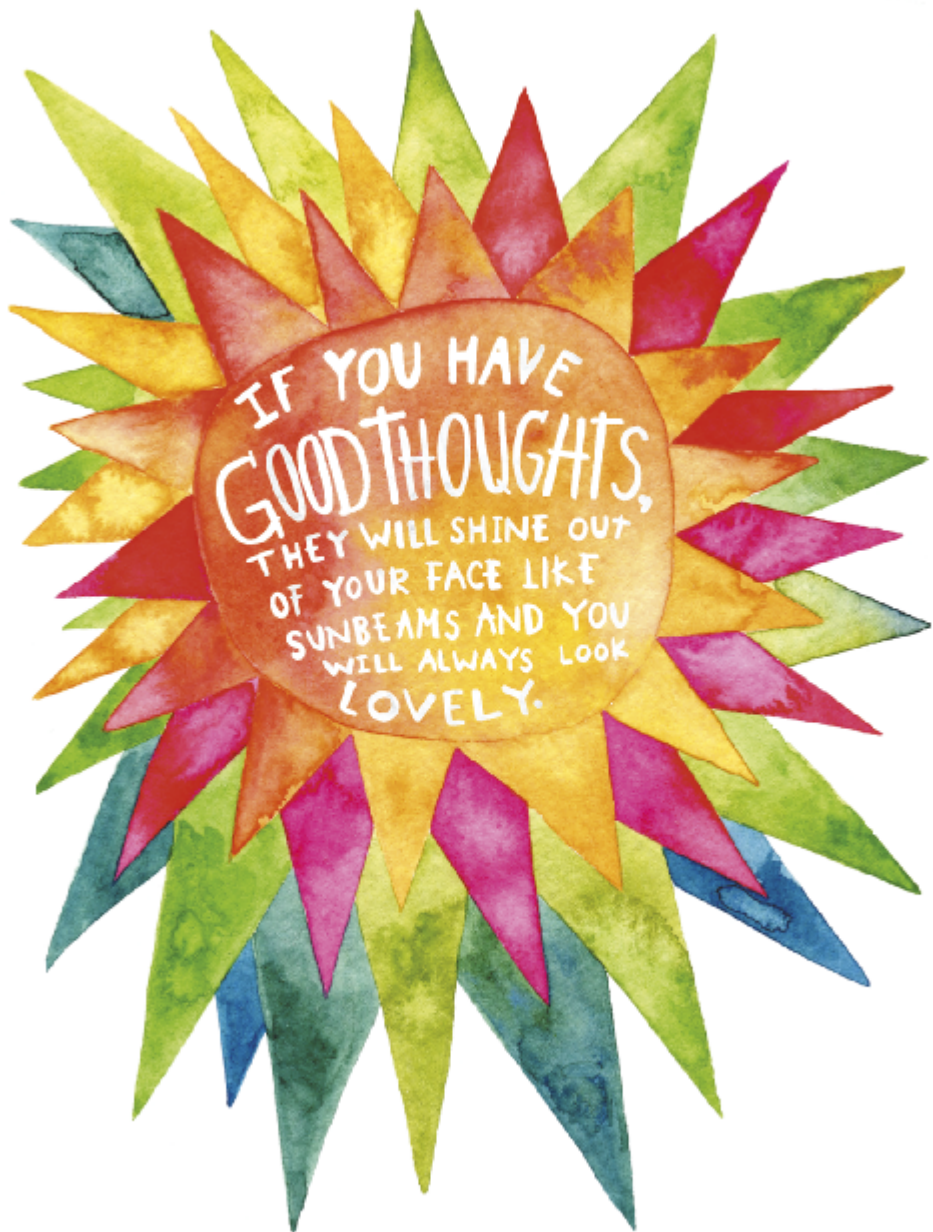 IF YOU HAVE
GOOD THOUGHTS,
THEY WILL SHINE OUT
OF YOUR FACE LIKE
SUNBEAMS AND YOU
WILL ALWAYS LOOK
LOVELY.